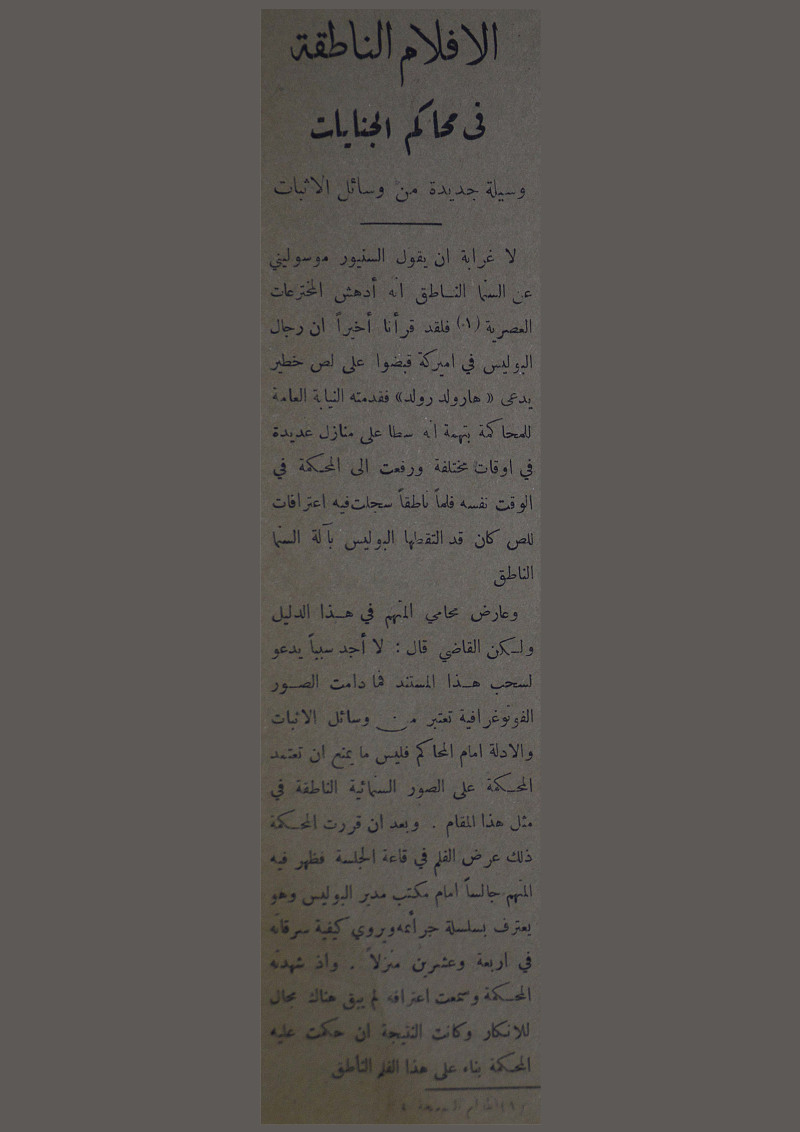 الافلام الناطقة
فى محاكم الجنايات
وسيلة جديدة من وسائل الاثبات
لا غرابة ان يقول السنيور موسوليني
عن السنما الناطق انه أدهش المخترعات
العصرية (١) فلقد قرأنا أخيراً ان رجال
البوليس في اميركة قبضوا على لص خطير
يدعى « هارولد رولد» فقدمته النيابة العامة
للمحاكمة بتهمة انه سطا على منازل عديدة
في اوقات مختلفة ورفعت الى المحكمة في
الوقت نفسه فلماً ناطقاً سجلت فيه اعترافات
للص كان قد التقطها البوليس بآلة السنما
الناطق
وعارض محامي المتهم في هذا الدليل
ولكن القاضي قال : لا أجد سبباً يدعو
لسحب هذا المستند فما دامت الصور
الفوتوغرافية تعتبر من وسائل الاثبات
والادلة امام المحاكم فليس ما يمنع ان تعتمد
المحكمة على الصور السنمائية الناطقة في
مثل هذا المقام . وبعد ان قررت المحكمة
ذلك عرض الفلم في قاعة الجلسة فظهر فيه
المتهم جالساً امام مكتب مدير البوليس وهو
يعترف بسلسلة جرائمه ويروي كيفية سرقاته
في اربعة وعشرين منزلاً . واذ شهدته
المحكمة وسمعت اعترافه لم يبق هناك مجال
للانكار وكانت النتيجة ان حكمت عليه
المحكمة بناء على هذا الفلم الناطق